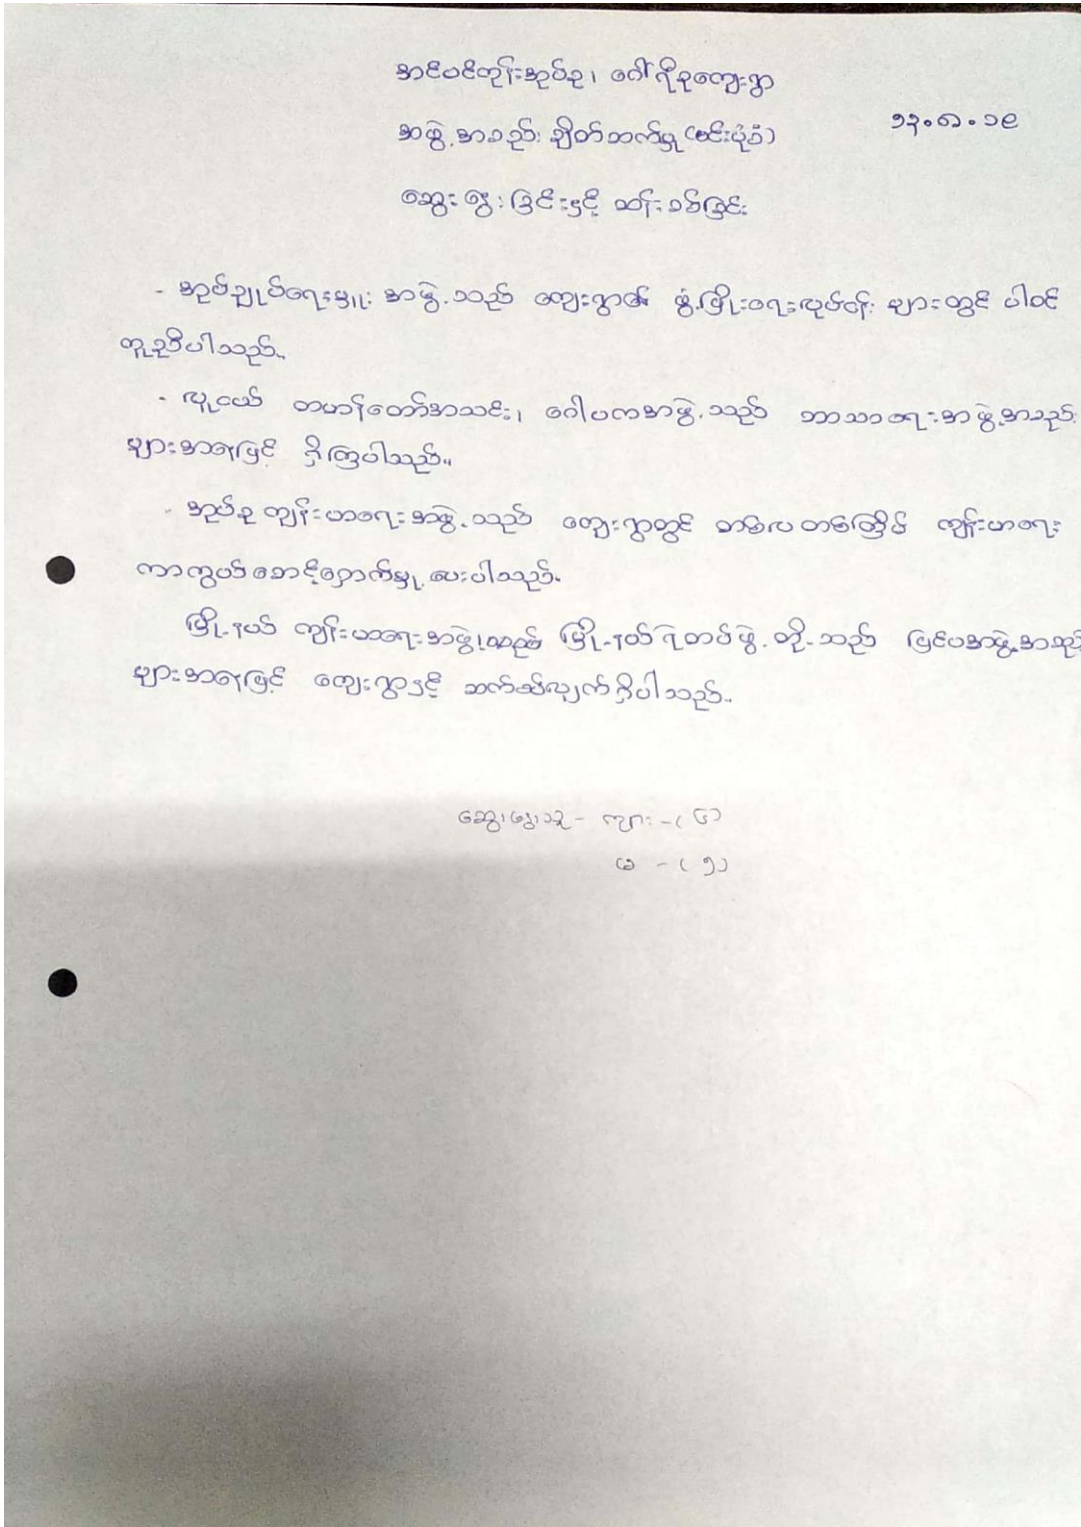 အင်ပင်တုန်းအုပ်စု၊ ဂေါ်ရီစုကျေးရွာ
၁၃.၈.၁၉
အဖွဲ့အစည်း ချိတ်ဆက်မှု (စင်းပုံခံ)
ဆွေးနွေးခြင်းနှင့် ဆန်းစစ်ခြင်း
- အုပ်ချုပ်ရေးမှူး အဖွဲ့သည် ကျေးရွာ၏ ဖွံ့ဖြိုးရေးလုပ်ငန်း များတွင် ပါဝင်
ကူညီပါသည်။
- လူငယ် တဟန်တော်အသင်း၊ ဂေါပကအဖွဲ့သည် ဘာသာရေးအဖွဲ့အစည်း
များအနေဖြင့် ရှိကြပါသည်။
- အုပ်စု ကျန်းမာရေးအဖွဲ့သည် ကျေးရွာတွင် တစ်လ တစ်ကြိမ် ကျန်းမာရေး
ကာကွယ်စောင့်ရှောက်မှု ပေးပါသည်။
မြို့နယ် ကျန်းမာရေးအဖွဲ့၊ မြို့နယ်ရဲတပ်ဖွဲ့ တို့သည် ပြင်ပအဖွဲ့အစည်း
များအနေဖြင့် ကျေးရွာနှင့် ဆက်စပ်လျက်ရှိပါသည်။
ဆွေးနွေးသူ - ကျား - (၆)
မ - (၅)